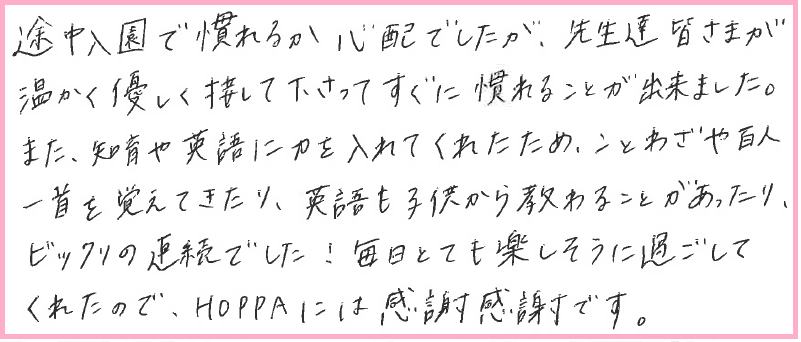 途中入園で慣れるか心配でしたが、先生達皆さまが
温かく優しく接して下さってすぐに慣れることが出来ました。
また、知育や英語に力を入れてくれたため、ことわざや百人
一首を覚えてきたり、英語も子供から教わることがあったり、
ビックリの連続でした！毎日とても楽しそうに過ごして
くれたので、HOPPAには感謝感謝です。